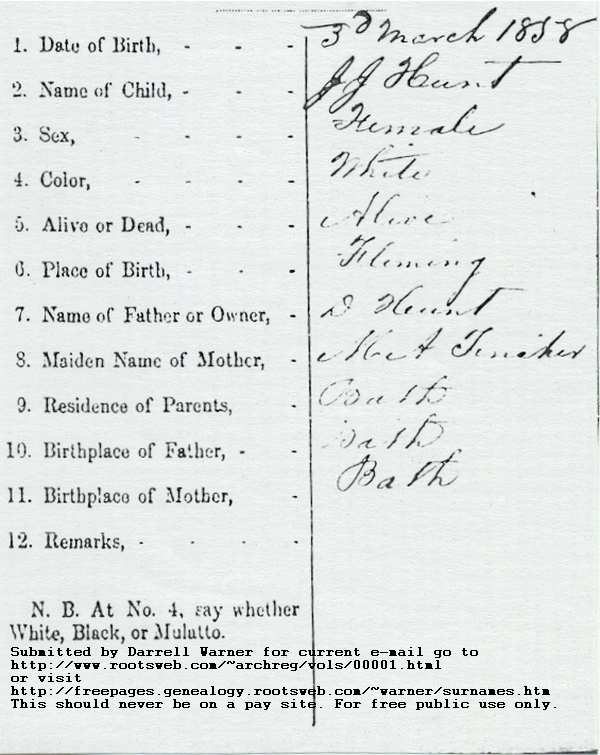 1. Date of Birth, - - - 3d March 1858
2. Name of Child, - - - J J Hunt
3. Sex, - - - - Female
4. Color, - - - - White
5. Alive or Dead, - - - Alive
6. Place of Birth, - - - Fleming
7. Name of Father or Owner, - D Hunt
8. Maiden Name of Mother, - A
9. Residence of Parents, - Bath
10. Birthplace of Father, - - Bath
11. Birthplace of Mother, - Bath
12. Remarks, - - - -
N. B. At No. 4, say whether
White, Black, or Mulatto.
Submitted by Darrell Warner for current e-mail go to
http://www.rootsweb.com/~archreg/vols/00001.html
or visit
http://freepages.genealogy.rootsweb.com/~warner/surnames.htm
This should never be on a pay site. For free public use only.